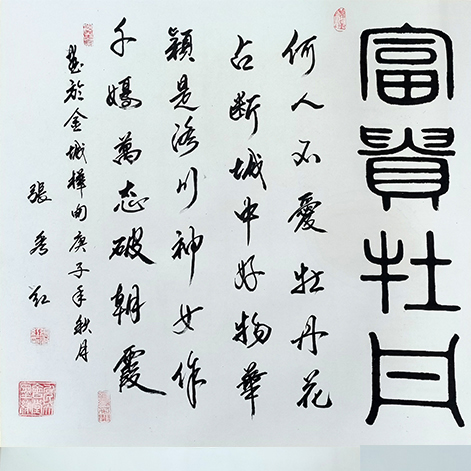 富貴牡丹
何人不愛牡丹花
占斷城中好物華
穎是洛川神女作
千嬌萬态破朝霞
書於金城樺甸庚子年秋月
張秀红